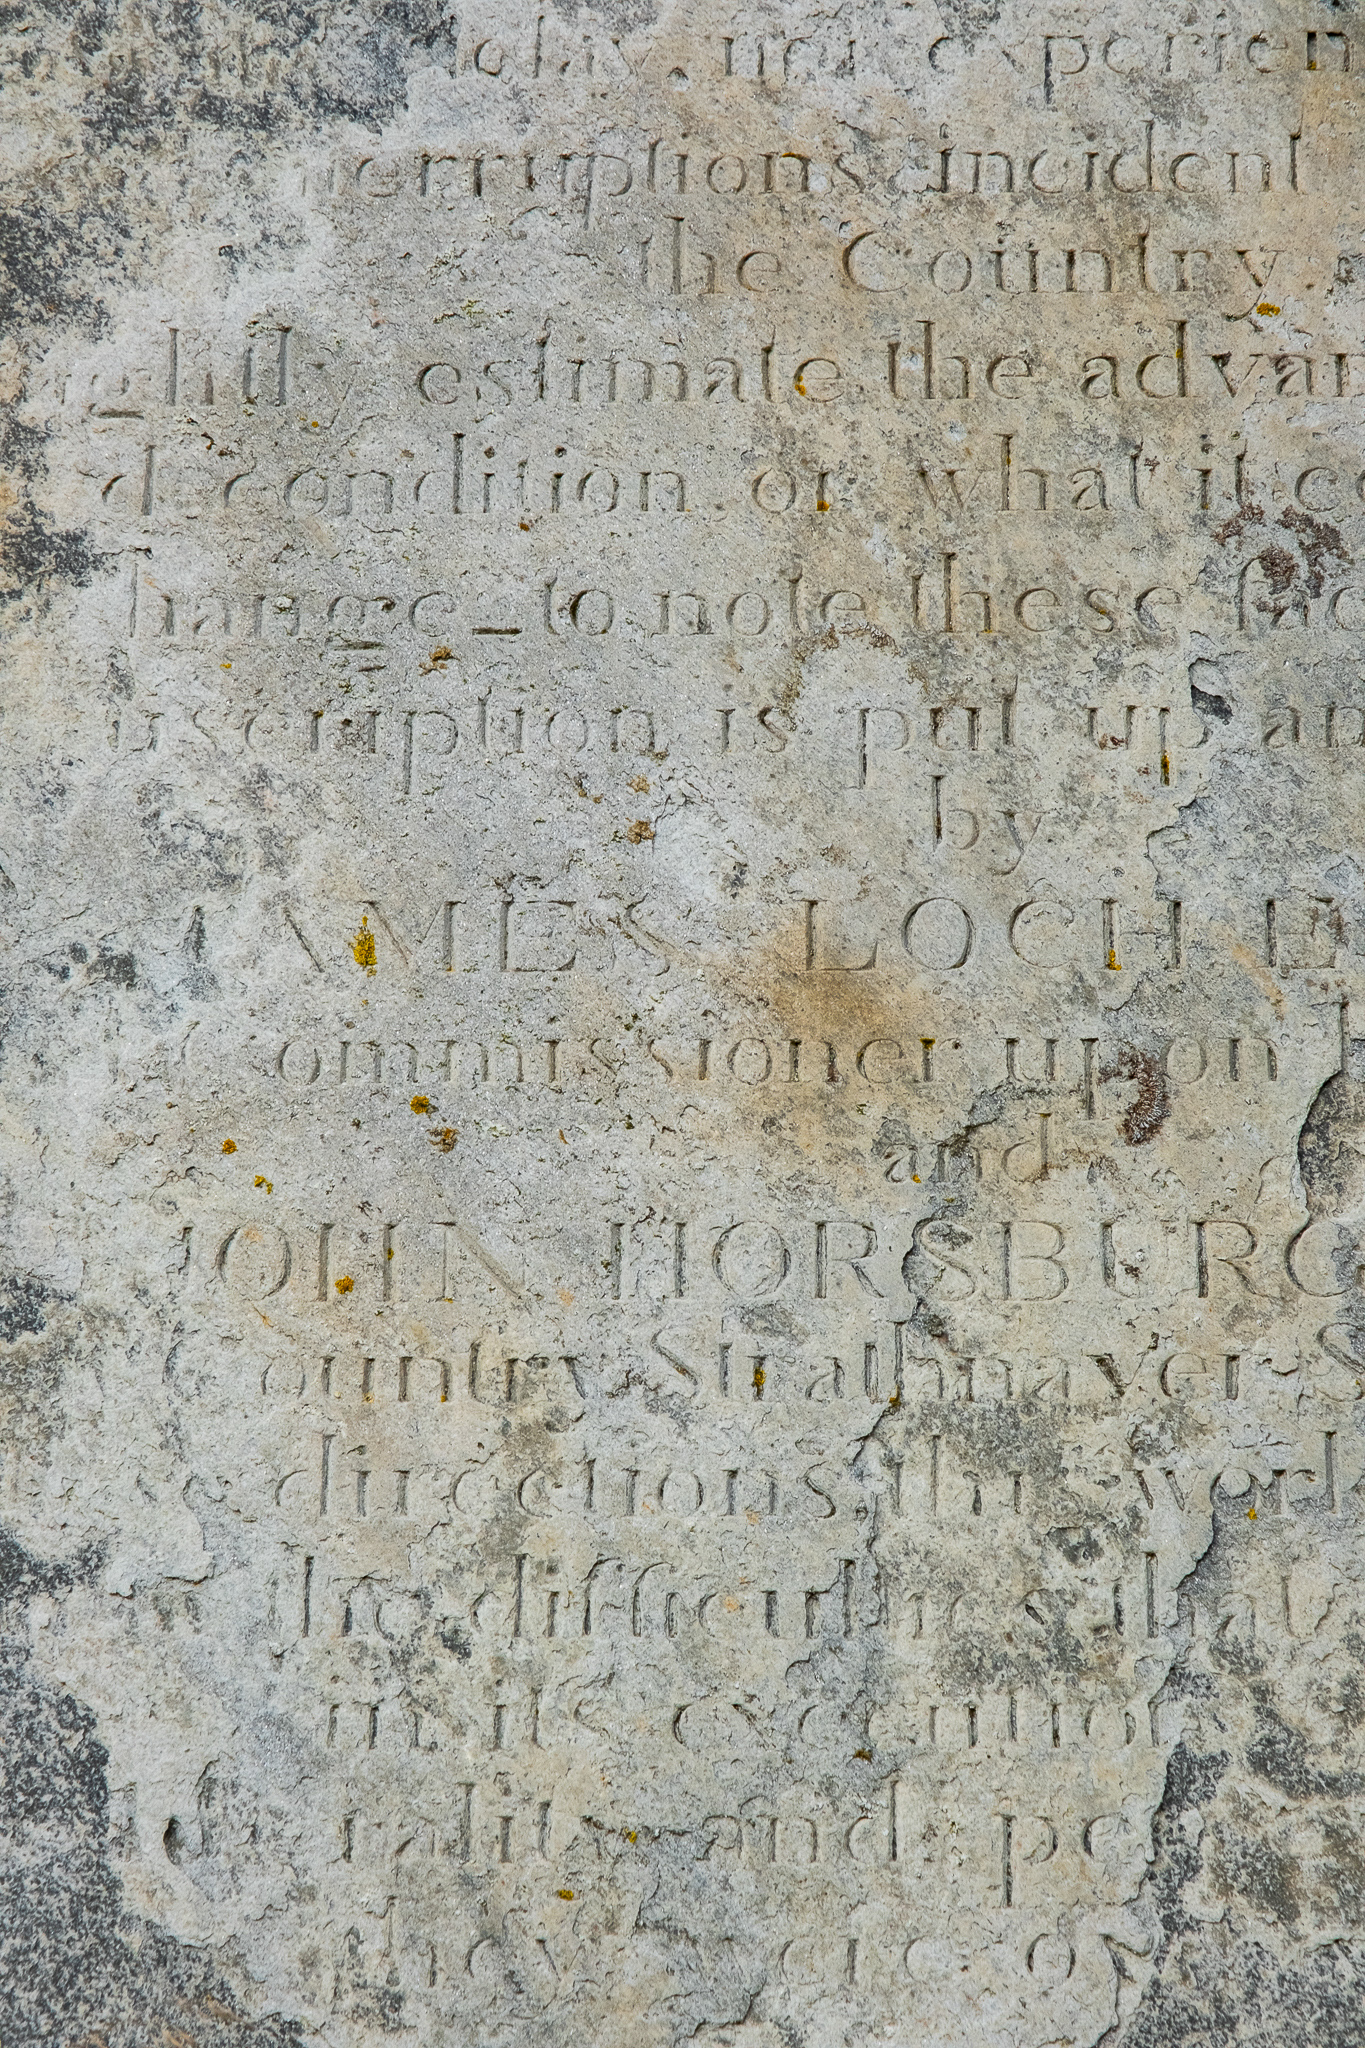 delay, nor experien
erruptions incident
the Country
ightly estimate the advan
d condition, or what it co
hange _ to note these fac
nscription is put up an
by
JAMES LOCH E
Commissioner upon
and
JOHN HORSBURG
Country Strathnaver S
directions, the work
the difficulties that
in its execution
rality and pe
they